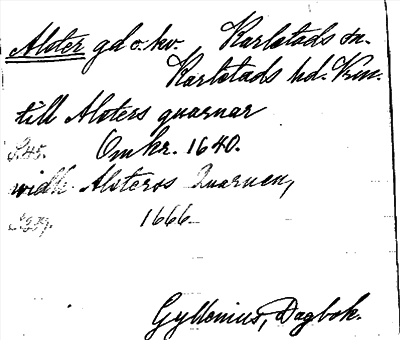 Alster gd o. kv. Karlstads sn.
Karlstads hd. Krm.
till Alsters quarnar
S. 45. Omkr. 1640.
widh Alsteros Quarnen,
1666
Gyllenius, Dagbok.